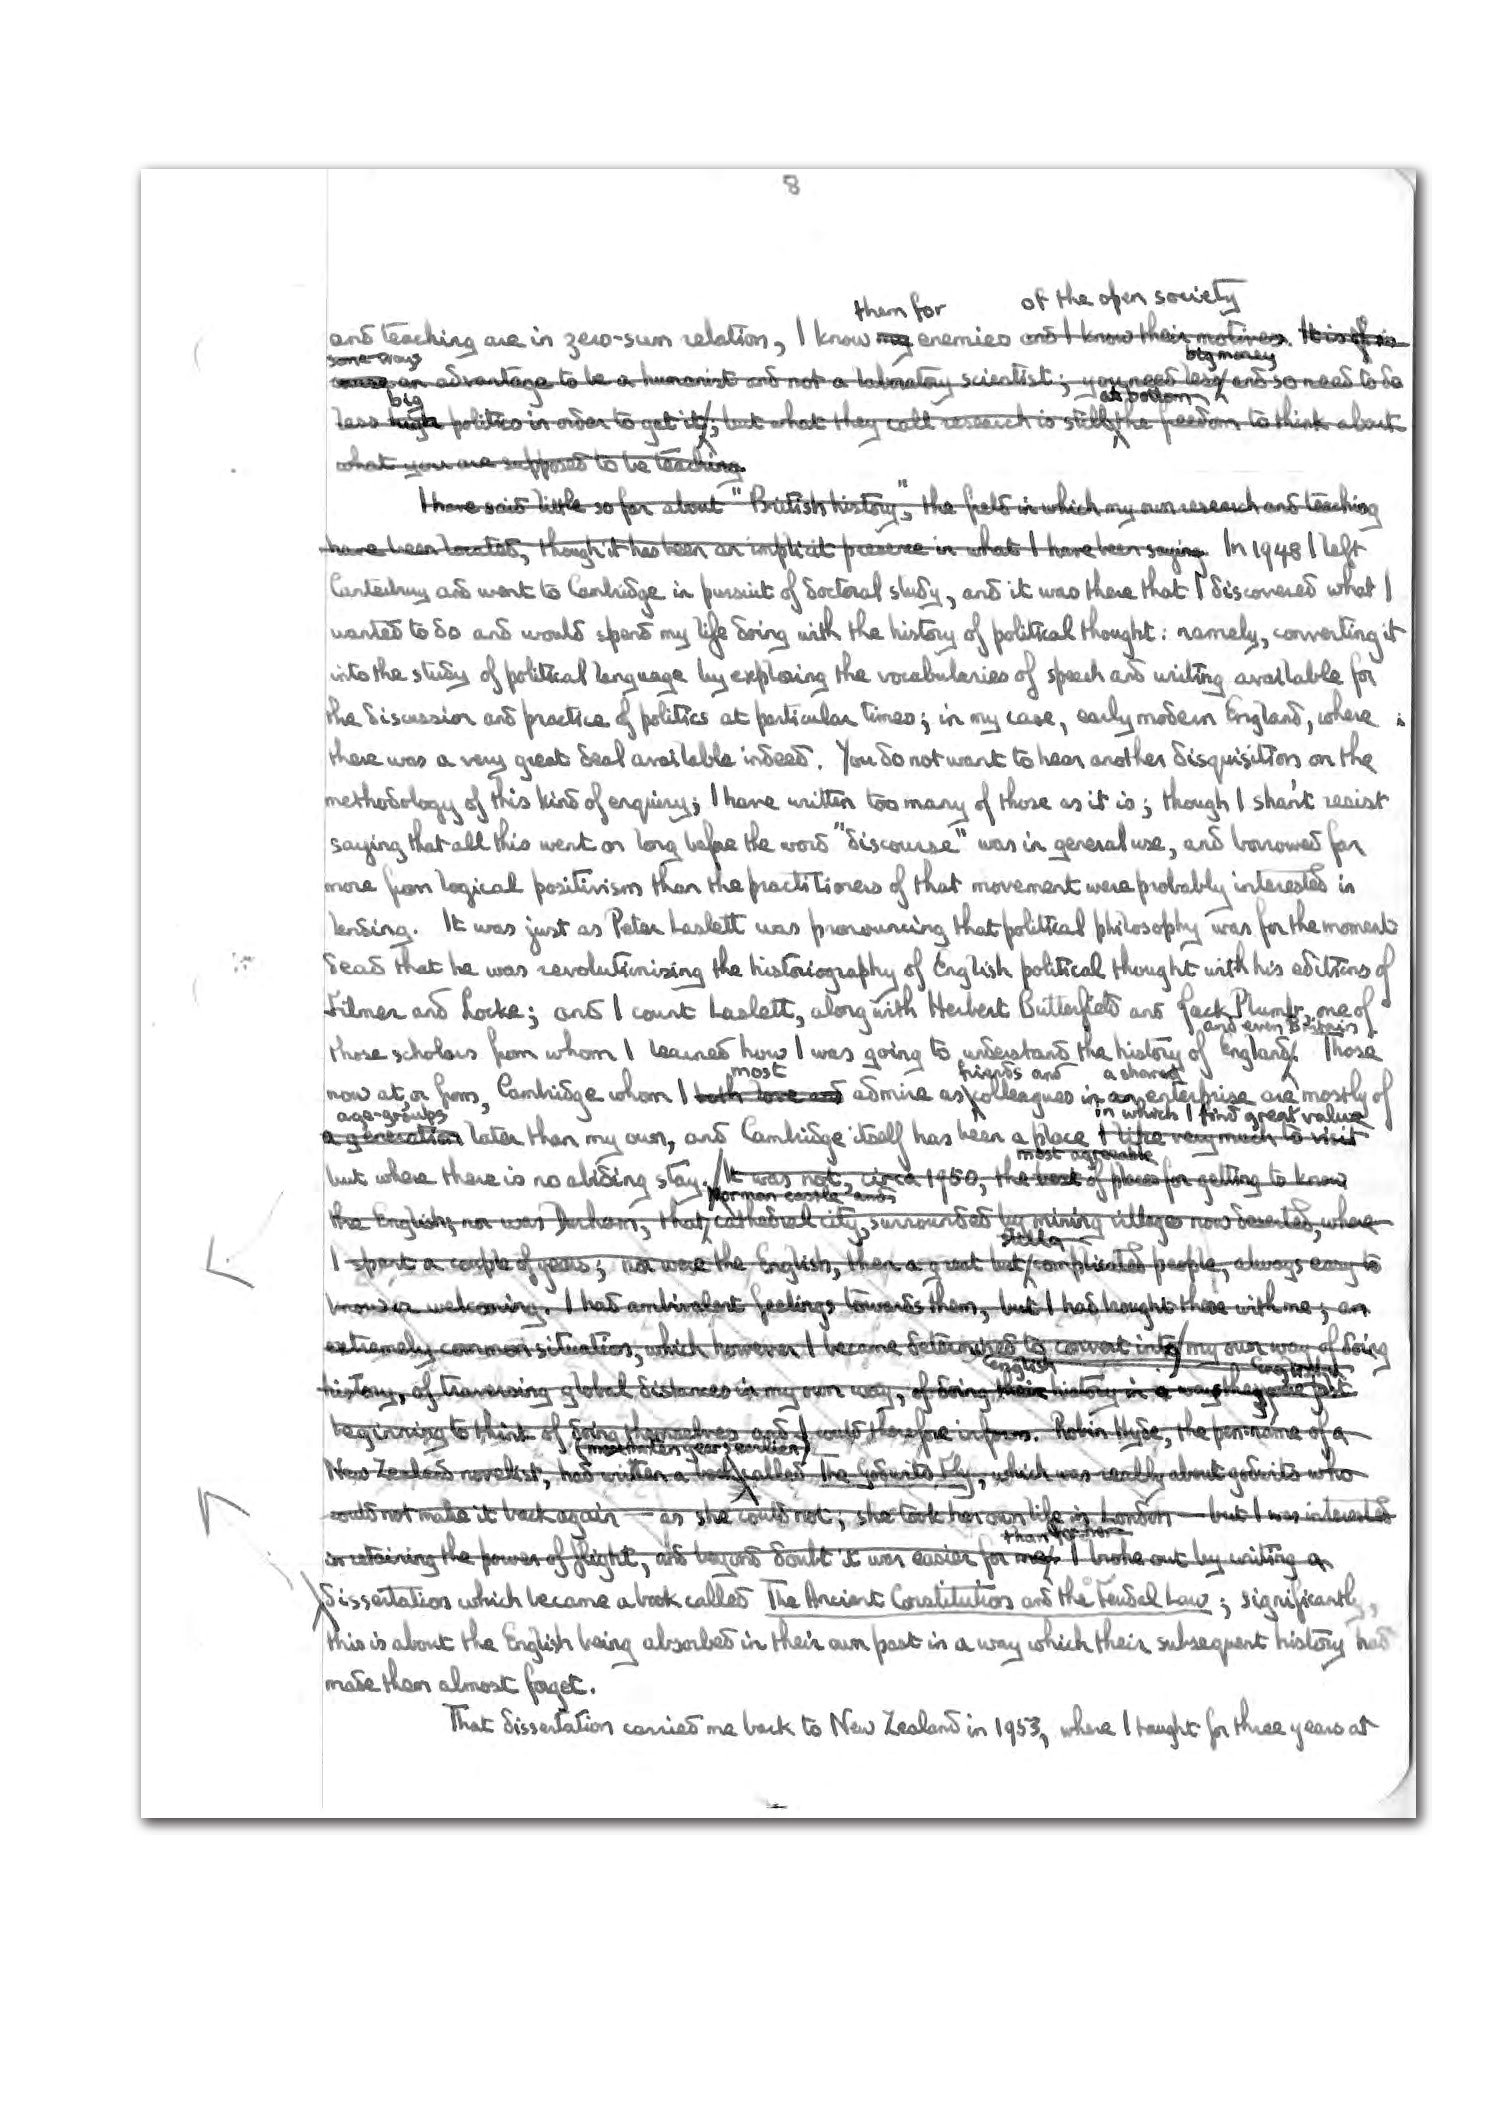 8
them for of the open society
and teaching are in zero-sum relation, I know my enemies and I know their motives. It is
some ways big money
an advantage to be a humanist and not a laboratory scientist; you need less and so need to do
big at bottom
less high politics in order to get it, but what they call research is still the freedom to think about
what you are supposed to be teaching.
I have said little so far about "British history", the field in which my own research and teaching
have been located, though it has been an implicit presence in what I have been saying. In 1948 I left
Canterbury and went to Cambridge in pursuit of doctoral study, and it was there that I discovered what I
wanted to do and would spend my life doing with the history of political thought: namely, converting it
into the study of political language by exploring the vocabularies of speech and writing available for
the discussion and practice of politics at particular times; in my case, early modern England, where
there was a very great deal available indeed. You do not want to hear another disquisition on the
methodology of this kind of enquiry; I have written too many of those as it is; though I shan't resist
saying that all this went on long before the word "discourse" was in general use, and borrowed far
more from logical positivism than the practitioners of that movement were probably interested in
lending. It was just as Peter Laslett was pronouncing that political philosophy was for the moment
dead that he was revolutionising the historiography of English political thought with his editions of
Filmer and Locke; and I count Laslett, along with Herbert Butterfield and Jack Plumb, one of
and even Britain
those scholars from whom I learned how I was going to understand the history of England. Those
most friends and a shared
now at, or from, Cambridge whom I both love and admire as colleagues in an enterprise are mostly of
age-groups in which I find great value
a generation later than my own, and Cambridge itself has been a place I like very much to visit
most agreeable
but where there is no abiding stay. It was not, circa 1950, the best of places for getting to know
Norman castle and
the English; nor was Durham, that cathedral city, surrounded by mining villages now deserted, where
still a
I spent a couple of years; nor were the English, then a great but complicated people, always easy to
know or welcoming. I had ambivalent feelings towards them, but I had brought these with me; an
extremely common situation, which however I became determined to convert into my own way of doing
English
history, of traversing global distances in my own way, of doing their history in a way they were just
beginning to think of doing themselves and I could therefore inform. Robin Hyde, the pen-name of a
New Zealand novelist, had written a book called The Godwits Fly, which was really about godwits who
could not make it back again — as she could not; she took her own life in London — but I was interested
than for her
in retaining the power of flight, and beyond doubt it was easier for me. I broke out by writing a
dissertation which became a book called The Ancient Constitution and the Feudal Law; significantly,
this is about the English being absorbed in their own past in a way which their subsequent history had
made them almost forget.
That dissertation carried me back to New Zealand in 1953, where I taught for three years at